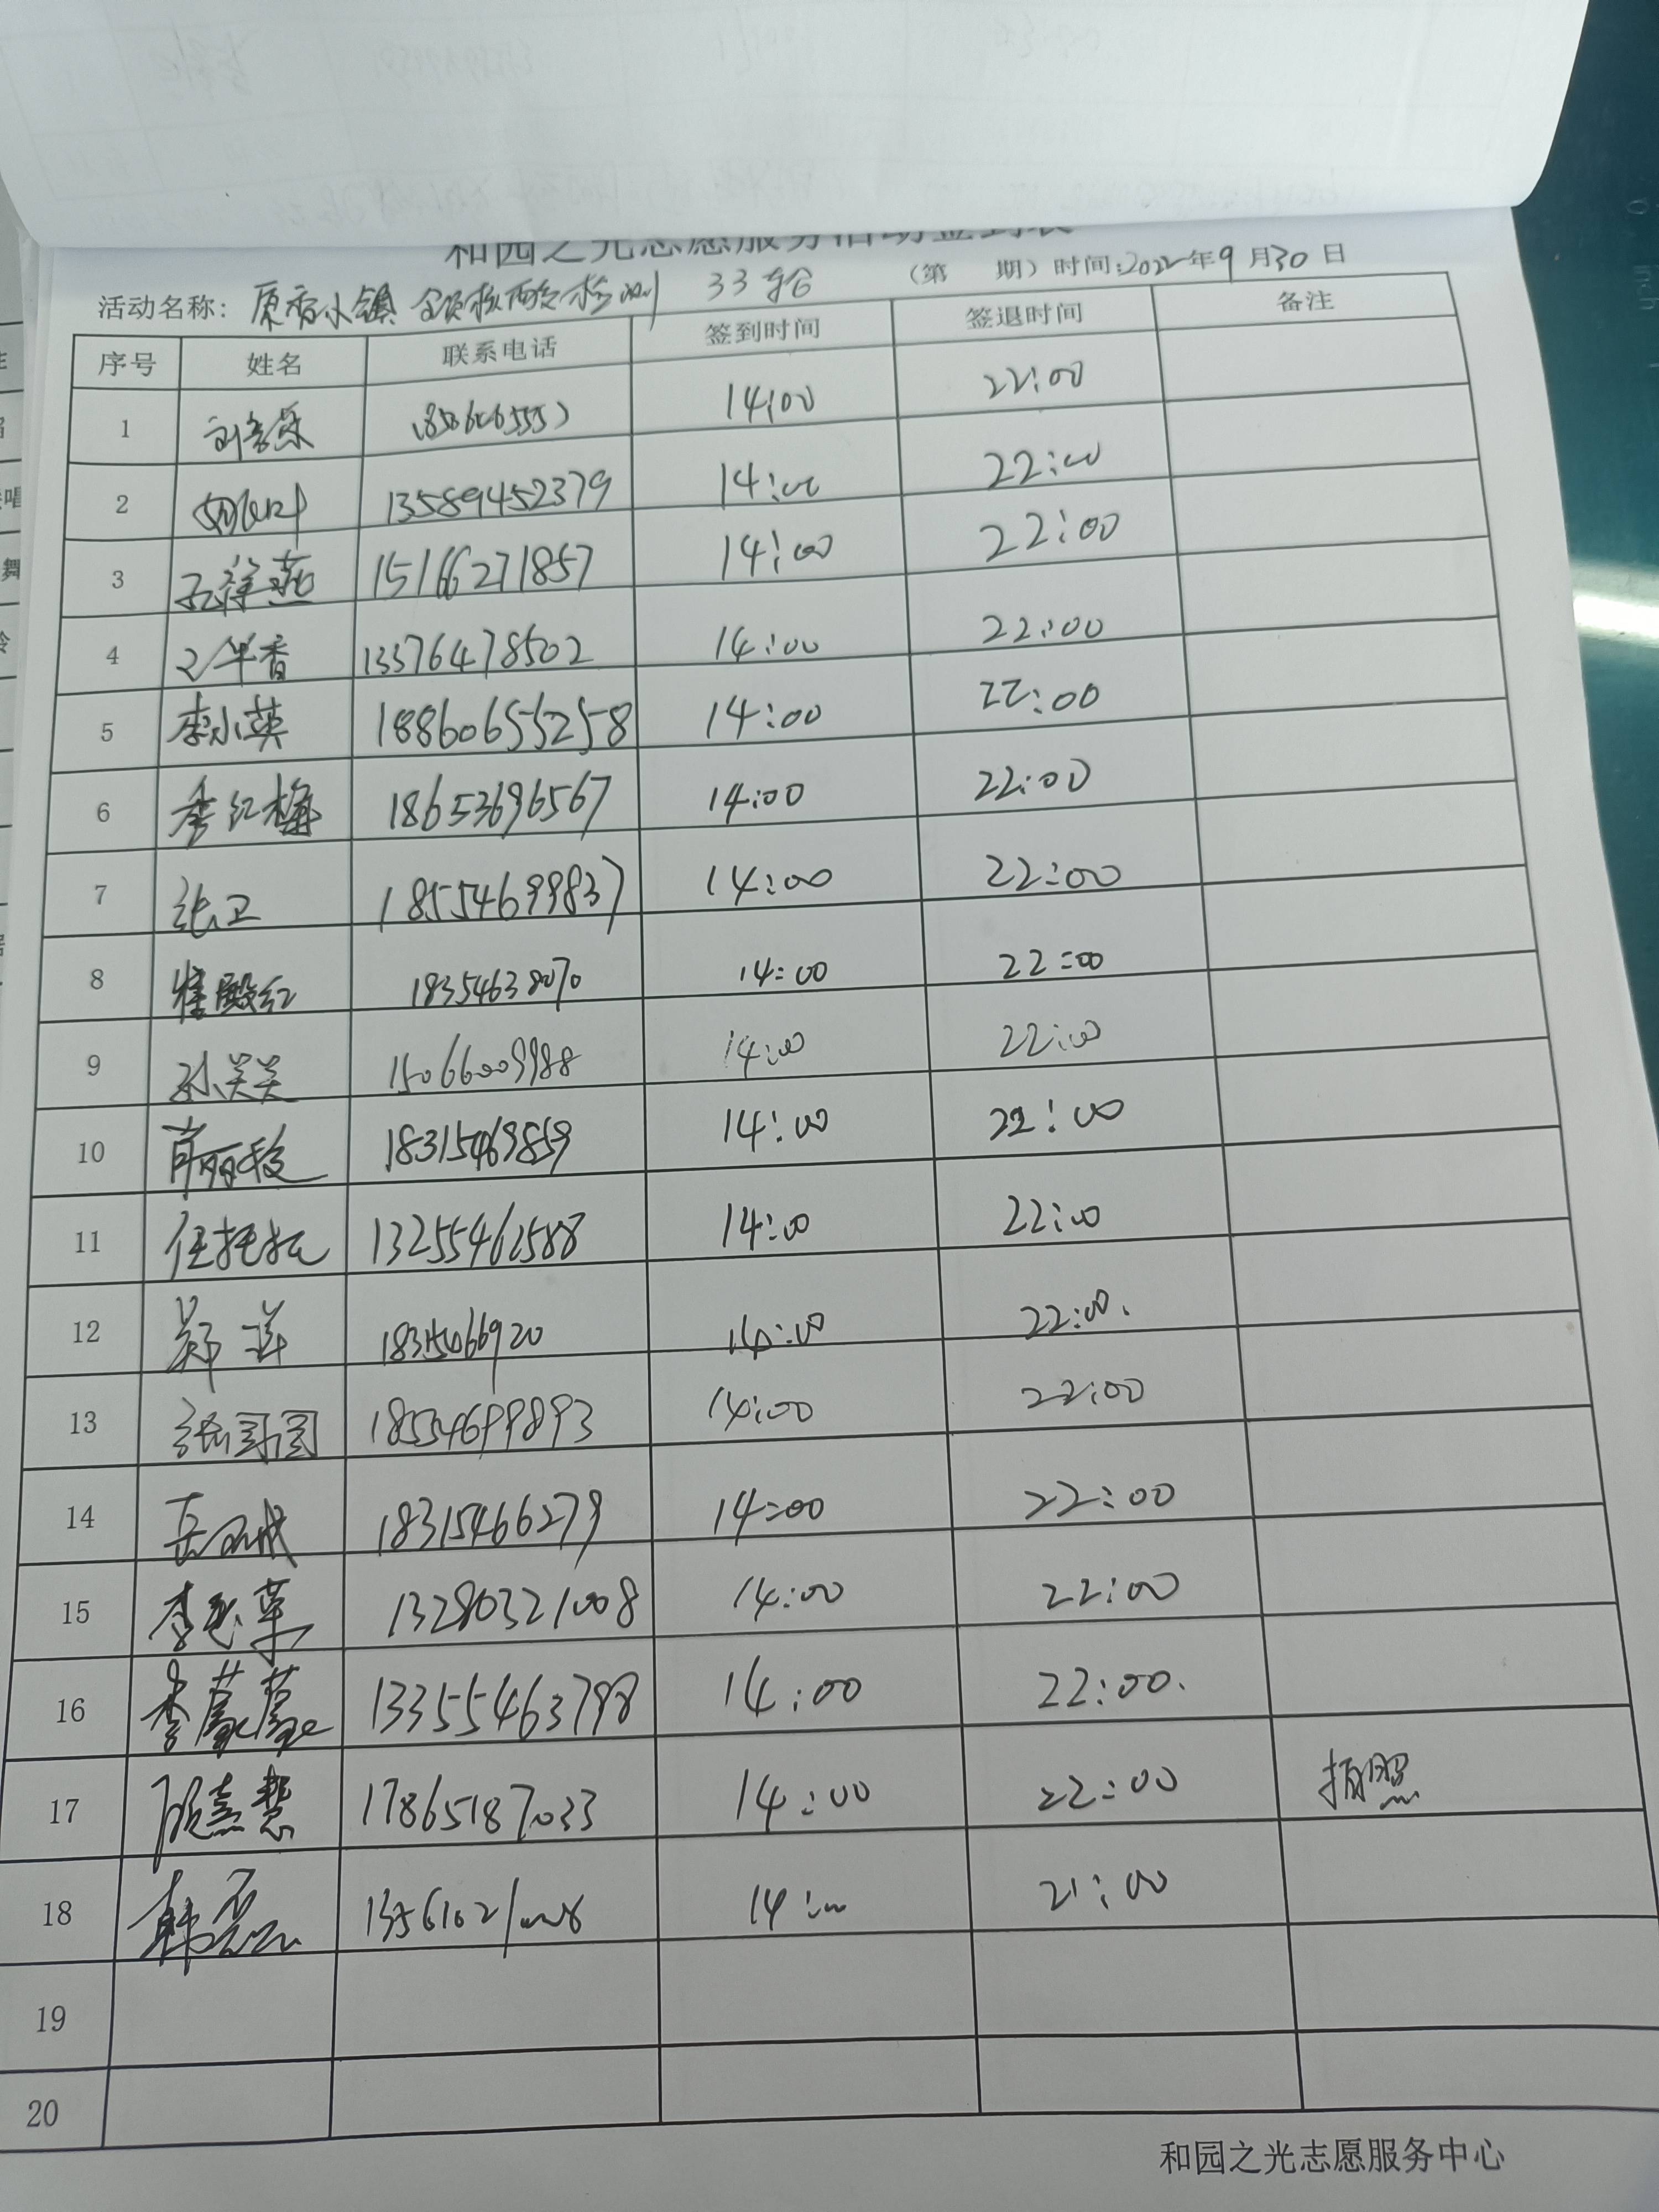 和园之光志愿服务活动签到表
活动名称：原香小镇 全员核酸检测 33轮 （第 期）时间：2022年9月30日
序号 姓名 联系电话 签到时间 签退时间 备注
1 14:00 22:00
2 13589452379 14:00 22:00
3 15166271857 14:00 22:00
4 13376478502 14:00 22:00
5 李小英 18860655258 14:00 22:00
6 李红梅 18653696567 14:00 22:00
7 张卫 18554699837 14:00 22:00
8 崔殿红 18354638070 14:00 22:00
9 孙关关 15066009988 14:00 22:00
10 18315469859 14:00 22:00
11 任托托 13255462588 14:00 22:00
12 郑洋 14:00 22:00.
13 18554699893 14:00 22:00
14 18315466279 14:00 22:00
15 13280321008 14:00 22:00
16 李蒙蒙 13355463798 14:00 22:00.
17 17865187033 14:00 22:00 拍照
18 韩磊 14:00 21:00
19
20
和园之光志愿服务中心